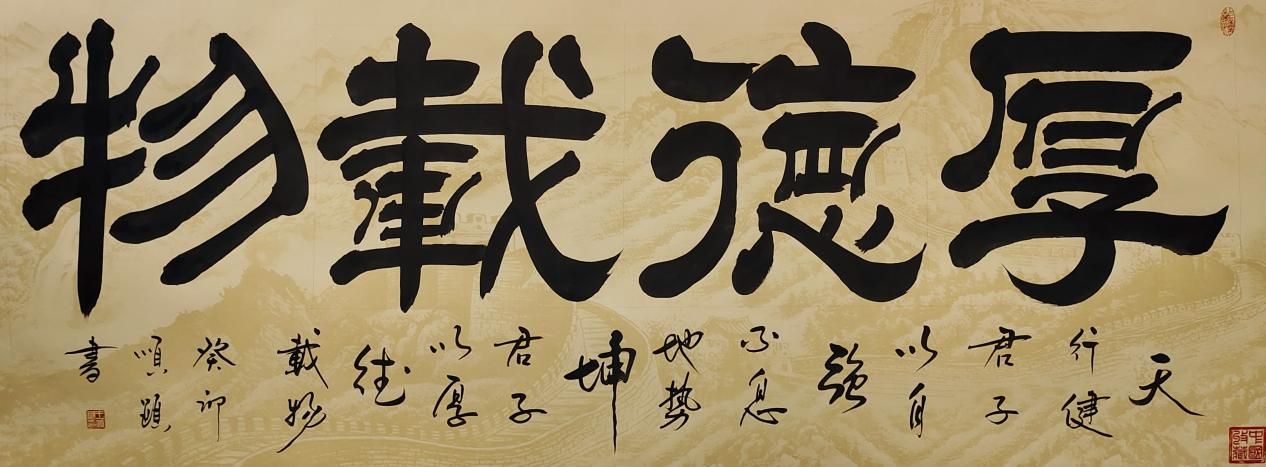 厚德載物
天
行健
君子
以自
強
不息
地勢
坤
君子
以厚
德
載物
癸卯
順
書